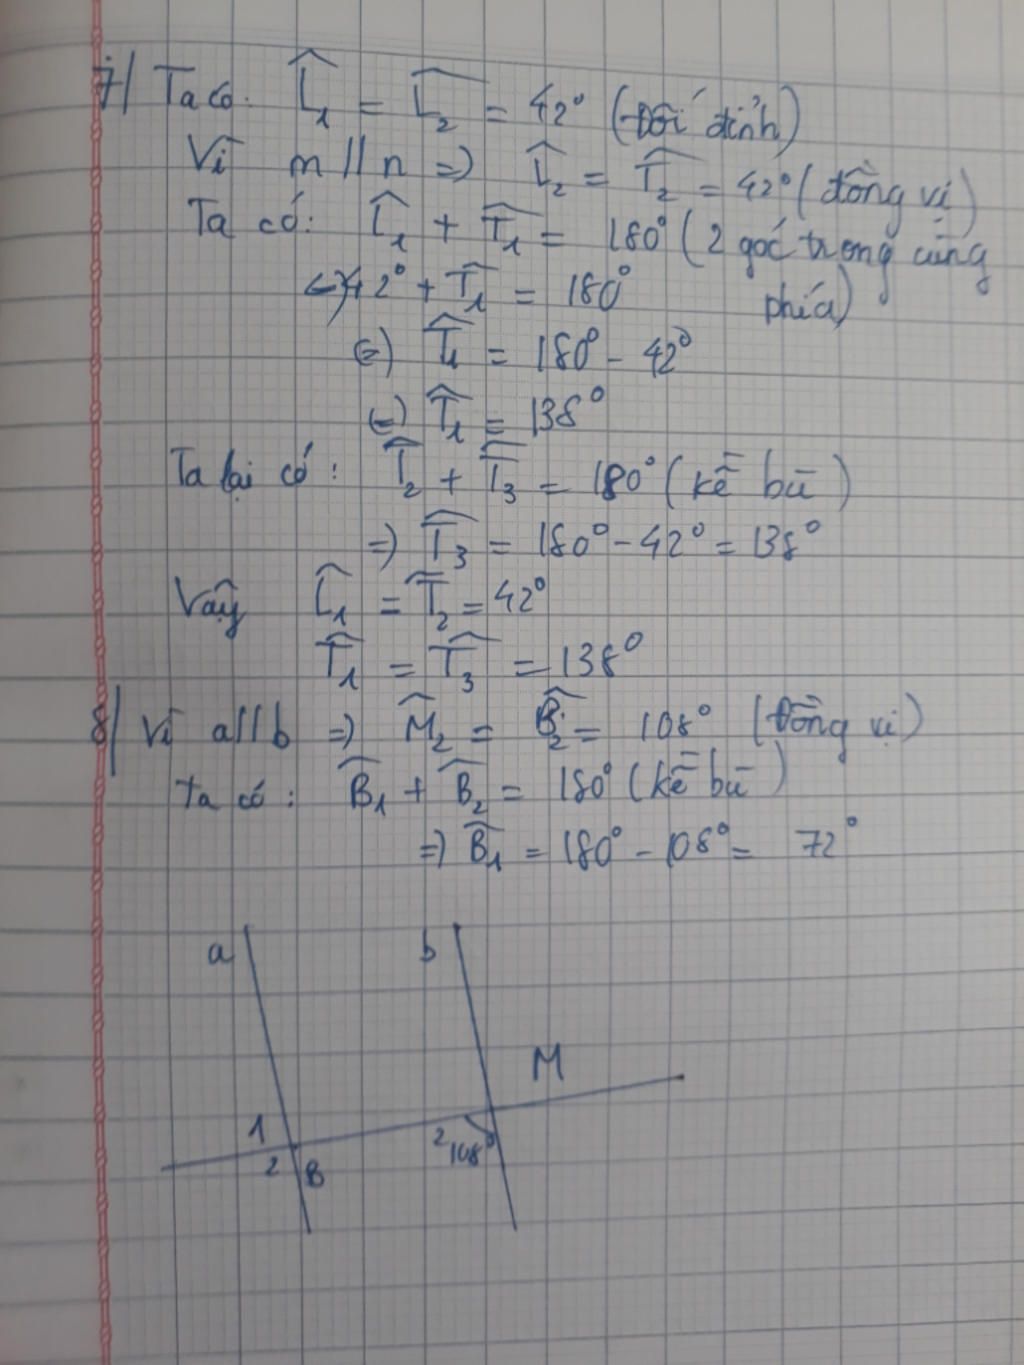 7| Ta có: L̂₁ = L̂₂ = 42° (Đối đỉnh)
Vì m // n => L̂₂ = T̂₂ = 42° (đồng vị)
Ta có: L̂₁ + T̂₁ = 180° (2 góc trong cùng
phía)
<=> 42° + T̂₁ = 180°
(=) T̂₁ = 180° - 42°
(=) T̂₁ = 138°
Ta lại có: T̂₂ + T̂₃ = 180° (kề bù)
=) T̂₃ = 180° - 42° = 138°
Vậy L̂₁ = T̂₂ = 42°
T̂₁ = T̂₃ = 138°
8| Vì a//b =) M̂₂ = B̂₂ = 108° (Đồng vị)
Ta có: B̂₁ + B̂₂ = 180° (kề bù)
=) B̂₁ = 180° - 108° = 72°
a b
M
1
2 B
2 108°